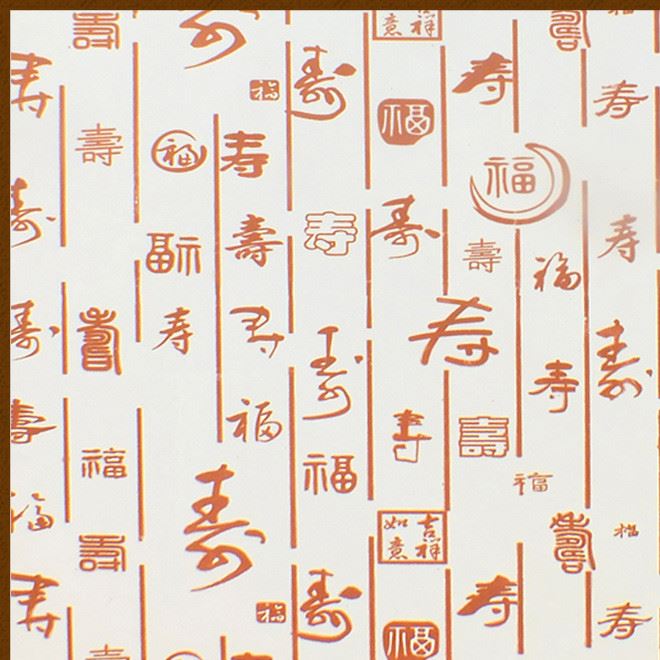 壽
寿
吉祥
如意
壽
福
寿
寿
福
寿
寿
壽
福
寿
福
寿
寿
壽
寿
寿
壽
福
福
寿
寿
壽
寿
寿
寿
寿
寿
壽
福
寿
壽
福
福
福
寿
福
壽
吉祥
如意
壽
福
寿
福
寿
寿
寿
壽
福